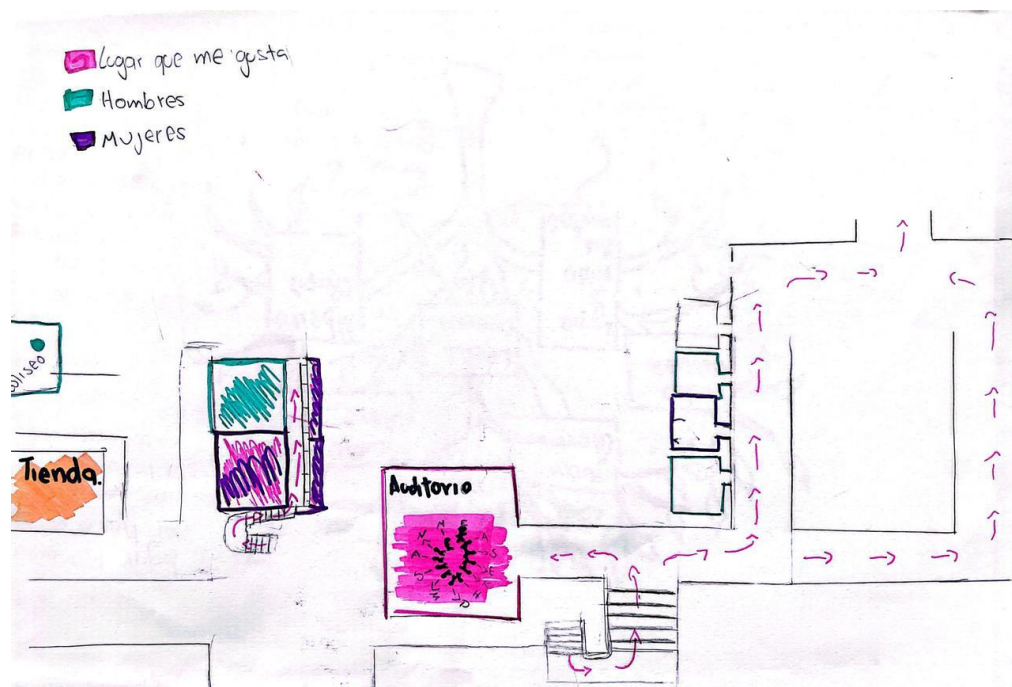 Lugar que me gusta
Hombres
Mujeres
oliseo
Tienda.
Auditorio